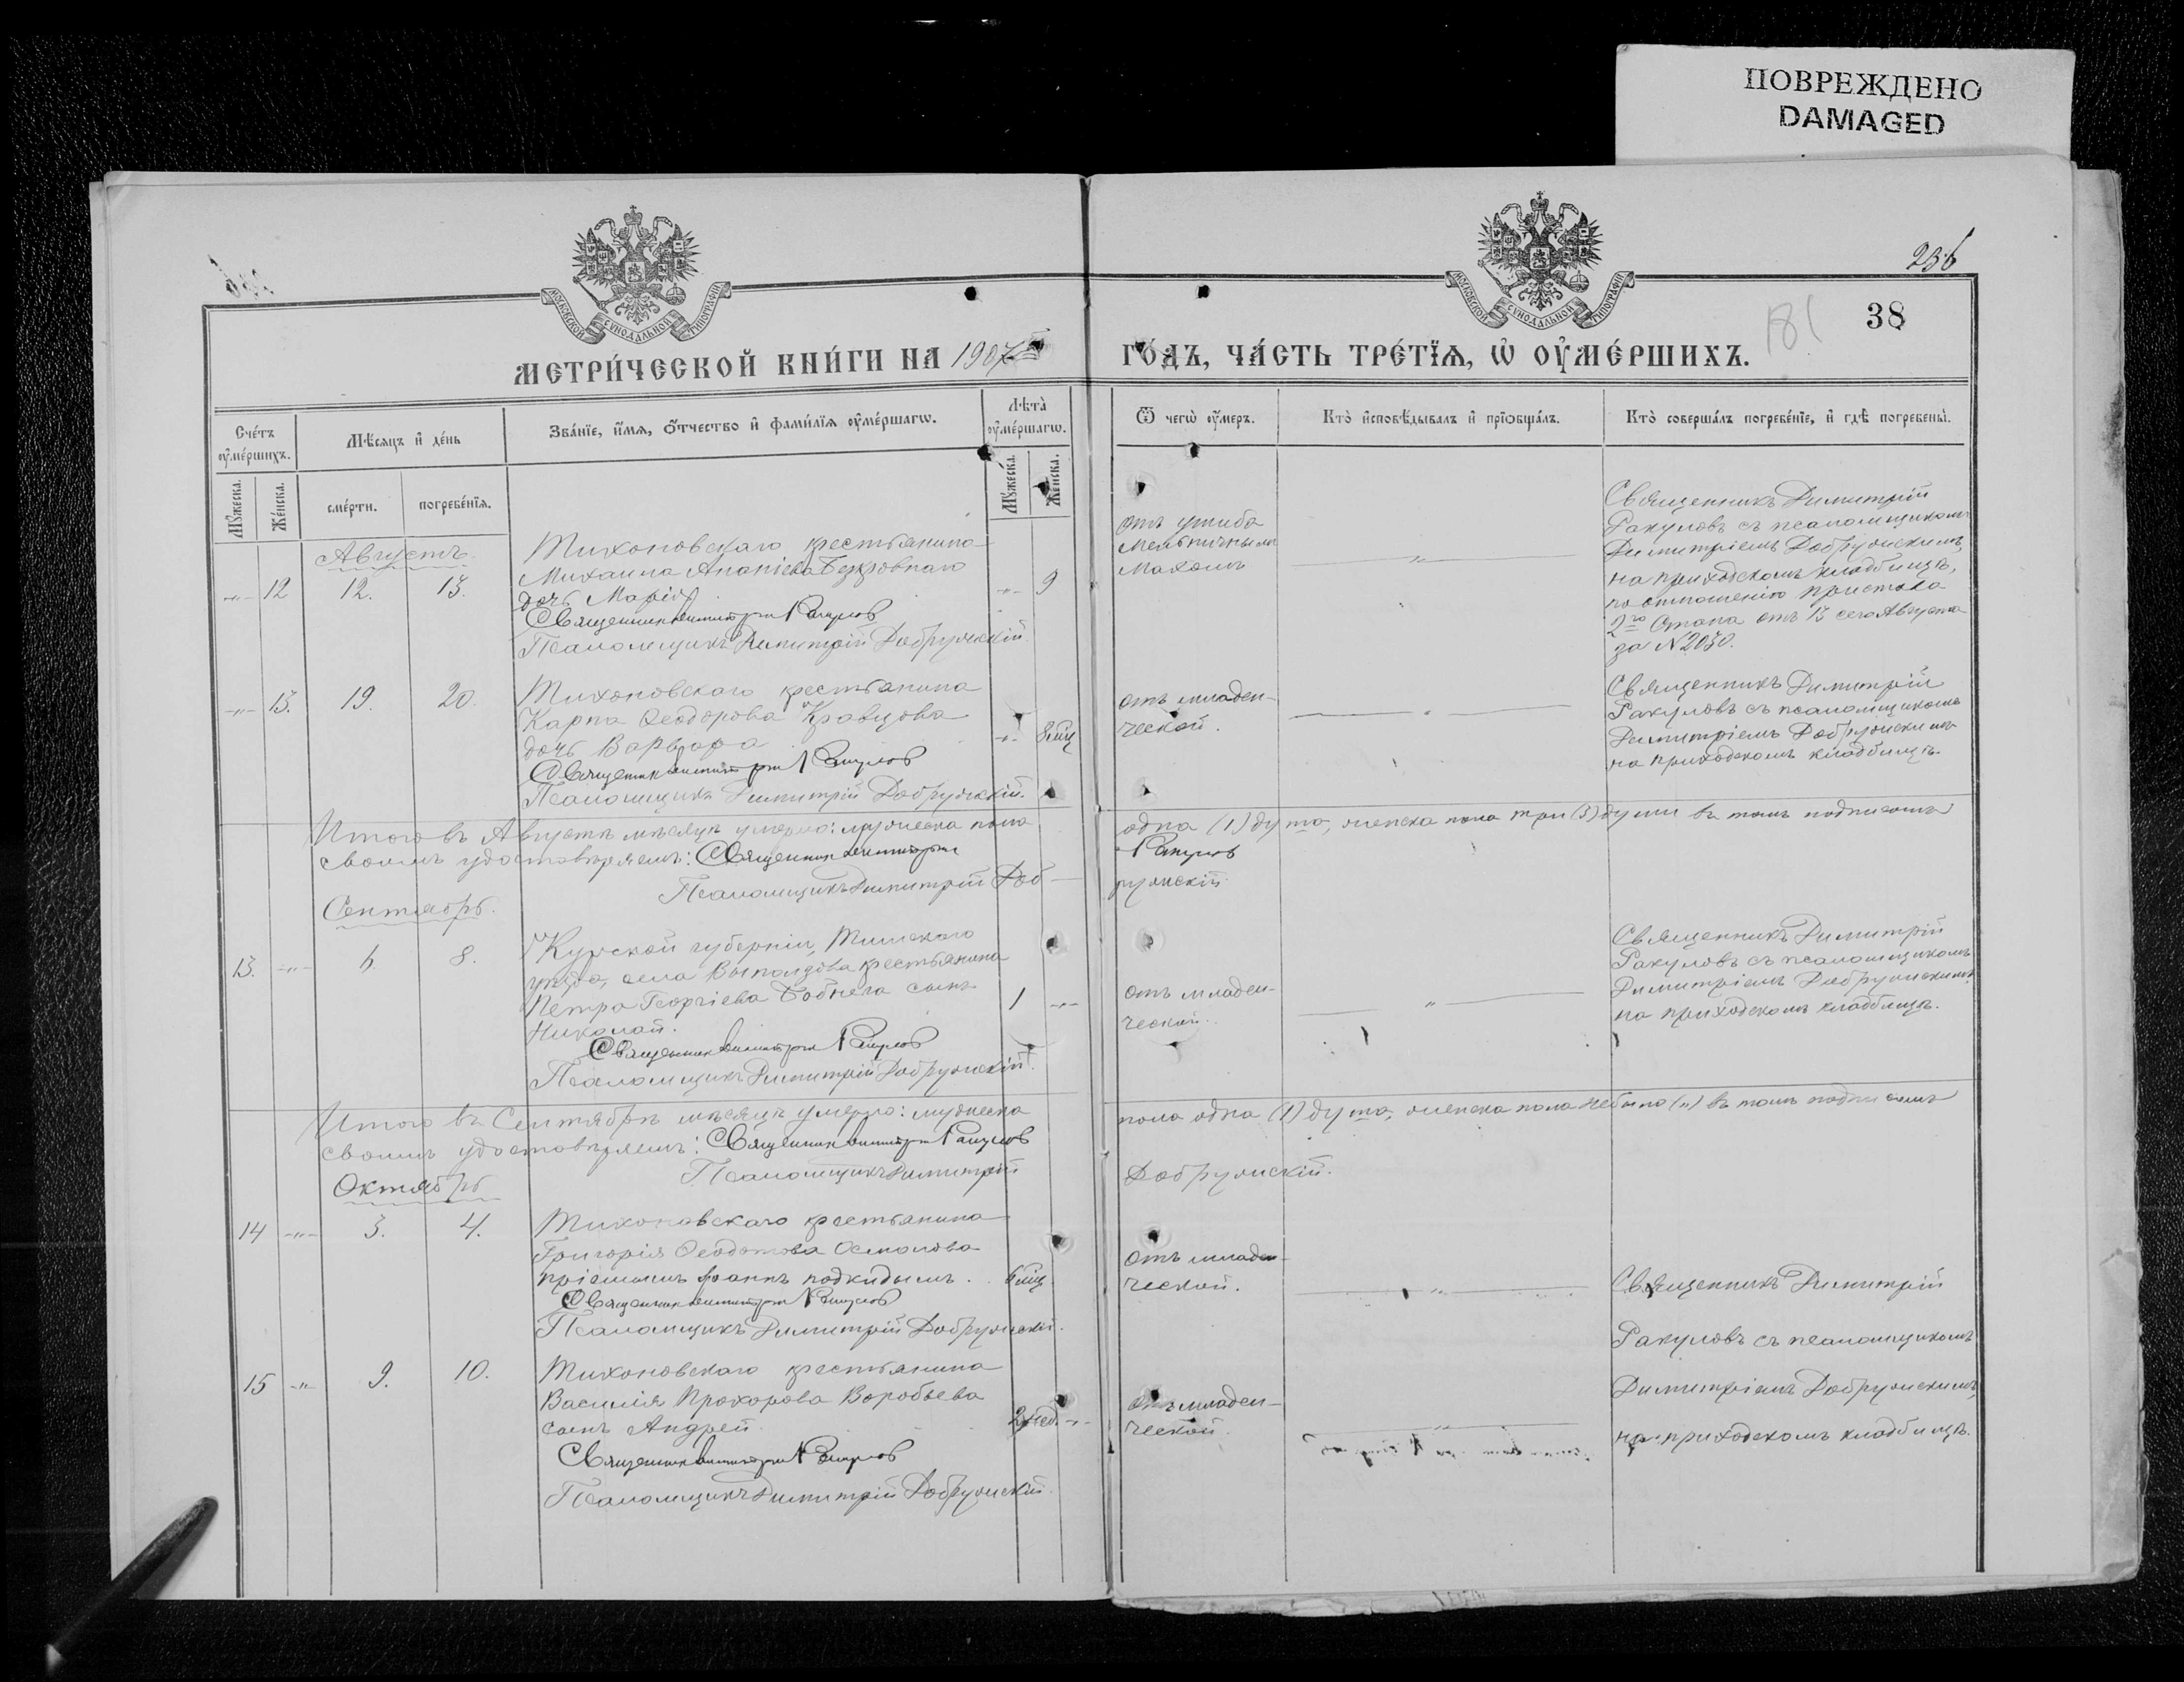 ПОВРЕЖДЕНО
DAMAGED
236
38
181
МОСКОВСКОЙ СѴНОДАЛЬНОЙ ТИПОГРАФІИ
МОСКОВСКОЙ СѴНОДАЛЬНОЙ ТИПОГРАФІИ
МЕТРИ́ЧЕСКОЙ КНИ́ГИ НА 1907
ГО́ДЪ, ЧА́СТЬ ТРЕ́ТЇѦ, Ѡ҆ ОУ҆МЕ́РШИХЪ.
Сче́тъ оу҆ме́ршихъ.
Мѣ́сяцъ и҆ де́нь
Зва́нїе, и҆́мѧ, ѻ҆́тчество и҆ фами́лїѧ оу҆ме́ршагѡ.
Лѣ́та̀ оу҆ме́ршагѡ.
Ѿ чегѡ̀ оу҆́меръ.
Кто̀ и҆сповѣ́дывалъ и҆ прїѡбща́лъ.
Кто̀ соверша́лъ погребе́нїе, и҆ гдѣ̀ погребены̀.
Мꙋ́жеска.
Же́нска.
сме́рти.
погребе́нїѧ.
Мꙋ́жеска.
Же́нска.
Августъ.
-"- 12 12. 13.
Тихоновскаго крестьянина
Михаила Ананіева Безкровнаго
дочь Марія
Священникъ Димитрій Ракуловъ
Псаломщикъ Димитрій Добружскій.
-"- 9
отъ ушиба
мельничнымъ
махомъ
Священникъ Димитрій
Ракуловъ съ псаломщикомъ
Димитріемъ Добружскимъ,
на приходскомъ кладбищѣ,
по отношенію пристава
2го Стана отъ 13 сего Августа
за № 2030.
-"- 13. 19. 20.
Тихоновскаго крестьянина
Карпа Ѳеодорова Кравцова
дочь Варвара
Священникъ Димитрій Ракуловъ
Псаломщикъ Димитрій Добружскій.
-"- 8 мц
отъ младен-
ческой.
Священникъ Димитрій
Ракуловъ съ псаломщикомъ
Димитріемъ Добружскимъ
на приходскомъ кладбищѣ.
Итого въ Августѣ мѣсяцѣ умерло: мужеска пола одна (1) душа, женска пола три (3) души въ томъ подписомъ
своимъ удостовѣряемъ: Священникъ Димитрій Ракуловъ
Псаломщикъ Димитрій Доб-
ружскій
Сентябрь.
13. -"- 6. 8.
Курской губерніи, Тимскаго
уѣзда, села крестьянина
Петра Георгіева сынъ
Николай.
Священникъ Димитрій Ракуловъ
Псаломщикъ Димитрій Добружскій.
1 -"-
отъ младен-
ческой.
Священникъ Димитрій
Ракуловъ съ псаломщикомъ
Димитріемъ Добружскимъ,
на приходскомъ кладбищѣ.
Итого въ Сентябрѣ мѣсяцѣ умерло: мужеска пола одна (1) душа, женска пола небыло (") въ томъ подписомъ
своимъ удостовѣряемъ: Священникъ Димитрій Ракуловъ
Псаломщикъ Димитрій Добружскій.
Октябрь
14 -"- 3. 4.
Тихоновскаго крестьянина
Григорія Ѳеодотова Осмолова
пріемышъ Іоаннъ подкидышъ.
Священникъ Димитрій Ракуловъ
Псаломщикъ Димитрій Добружскій.
6 мц.
отъ младен-
ческой.
Священникъ Димитрій
Ракуловъ съ псаломщикомъ
Димитріемъ Добружскимъ,
на приходскомъ кладбищѣ.
15 -"- 9. 10.
Тихоновскаго крестьянина
Василія Прохорова Воробьева
сынъ Андрей.
Священникъ Димитрій Ракуловъ
Псаломщикъ Димитрій Добружскій.
2 нед. -"-
отъ младен-
ческой.